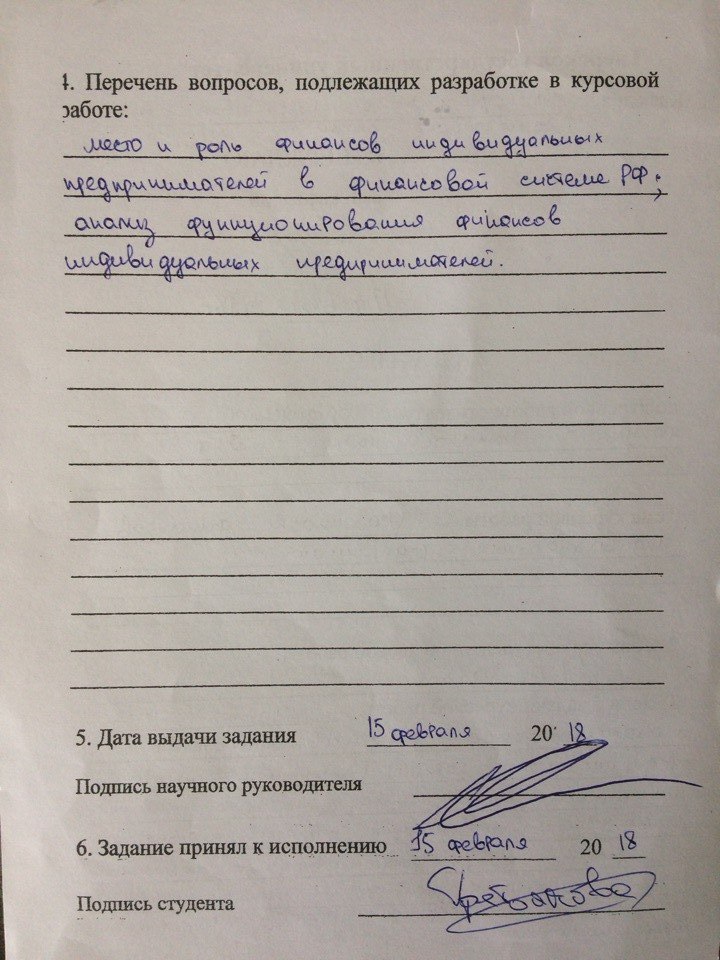 4. Перечень вопросов, подлежащих разработке в курсовой
работе:
место и роль финансов индивидуальных
предпринимателей в финансовой системе РФ;
анализ функционирования финансов
индивидуальных предпринимателей.
5. Дата выдачи задания 15 февраля 20 18
Подпись научного руководителя
6. Задание принял к исполнению 15 февраля 20 18
Подпись студента